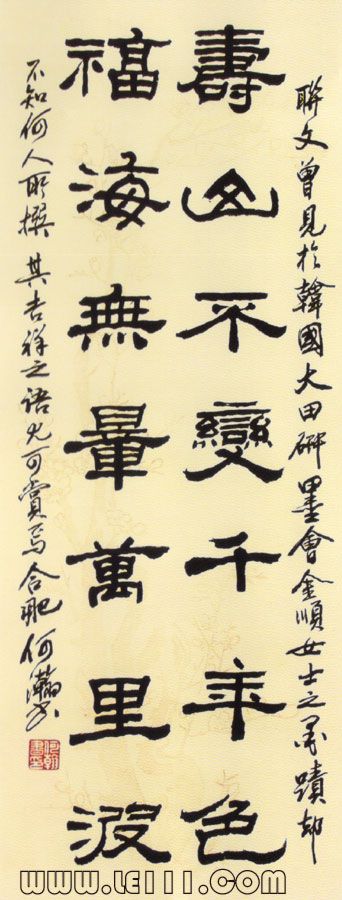 聯文曾見於韓國大田研墨會金順女士之墨蹟却
壽山不變千年色
福海無暈萬里波
不知何人所撰其吉祥之語尤可賞焉合肥何瀚书
www.LEIII.com